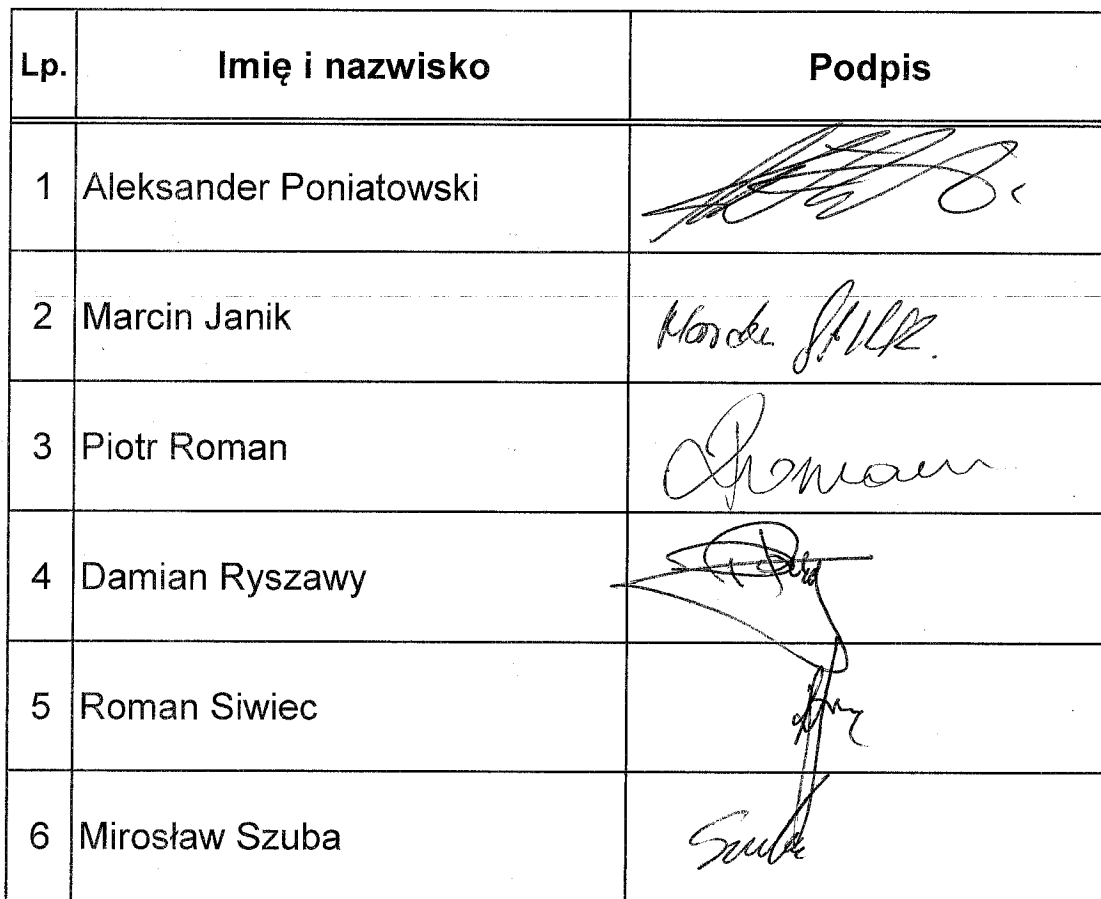 Lp. Imię i nazwisko Podpis
1 Aleksander Poniatowski
2 Marcin Janik
3 Piotr Roman Roman
4 Damian Ryszawy
5 Roman Siwiec
6 Mirosław Szuba Szuba